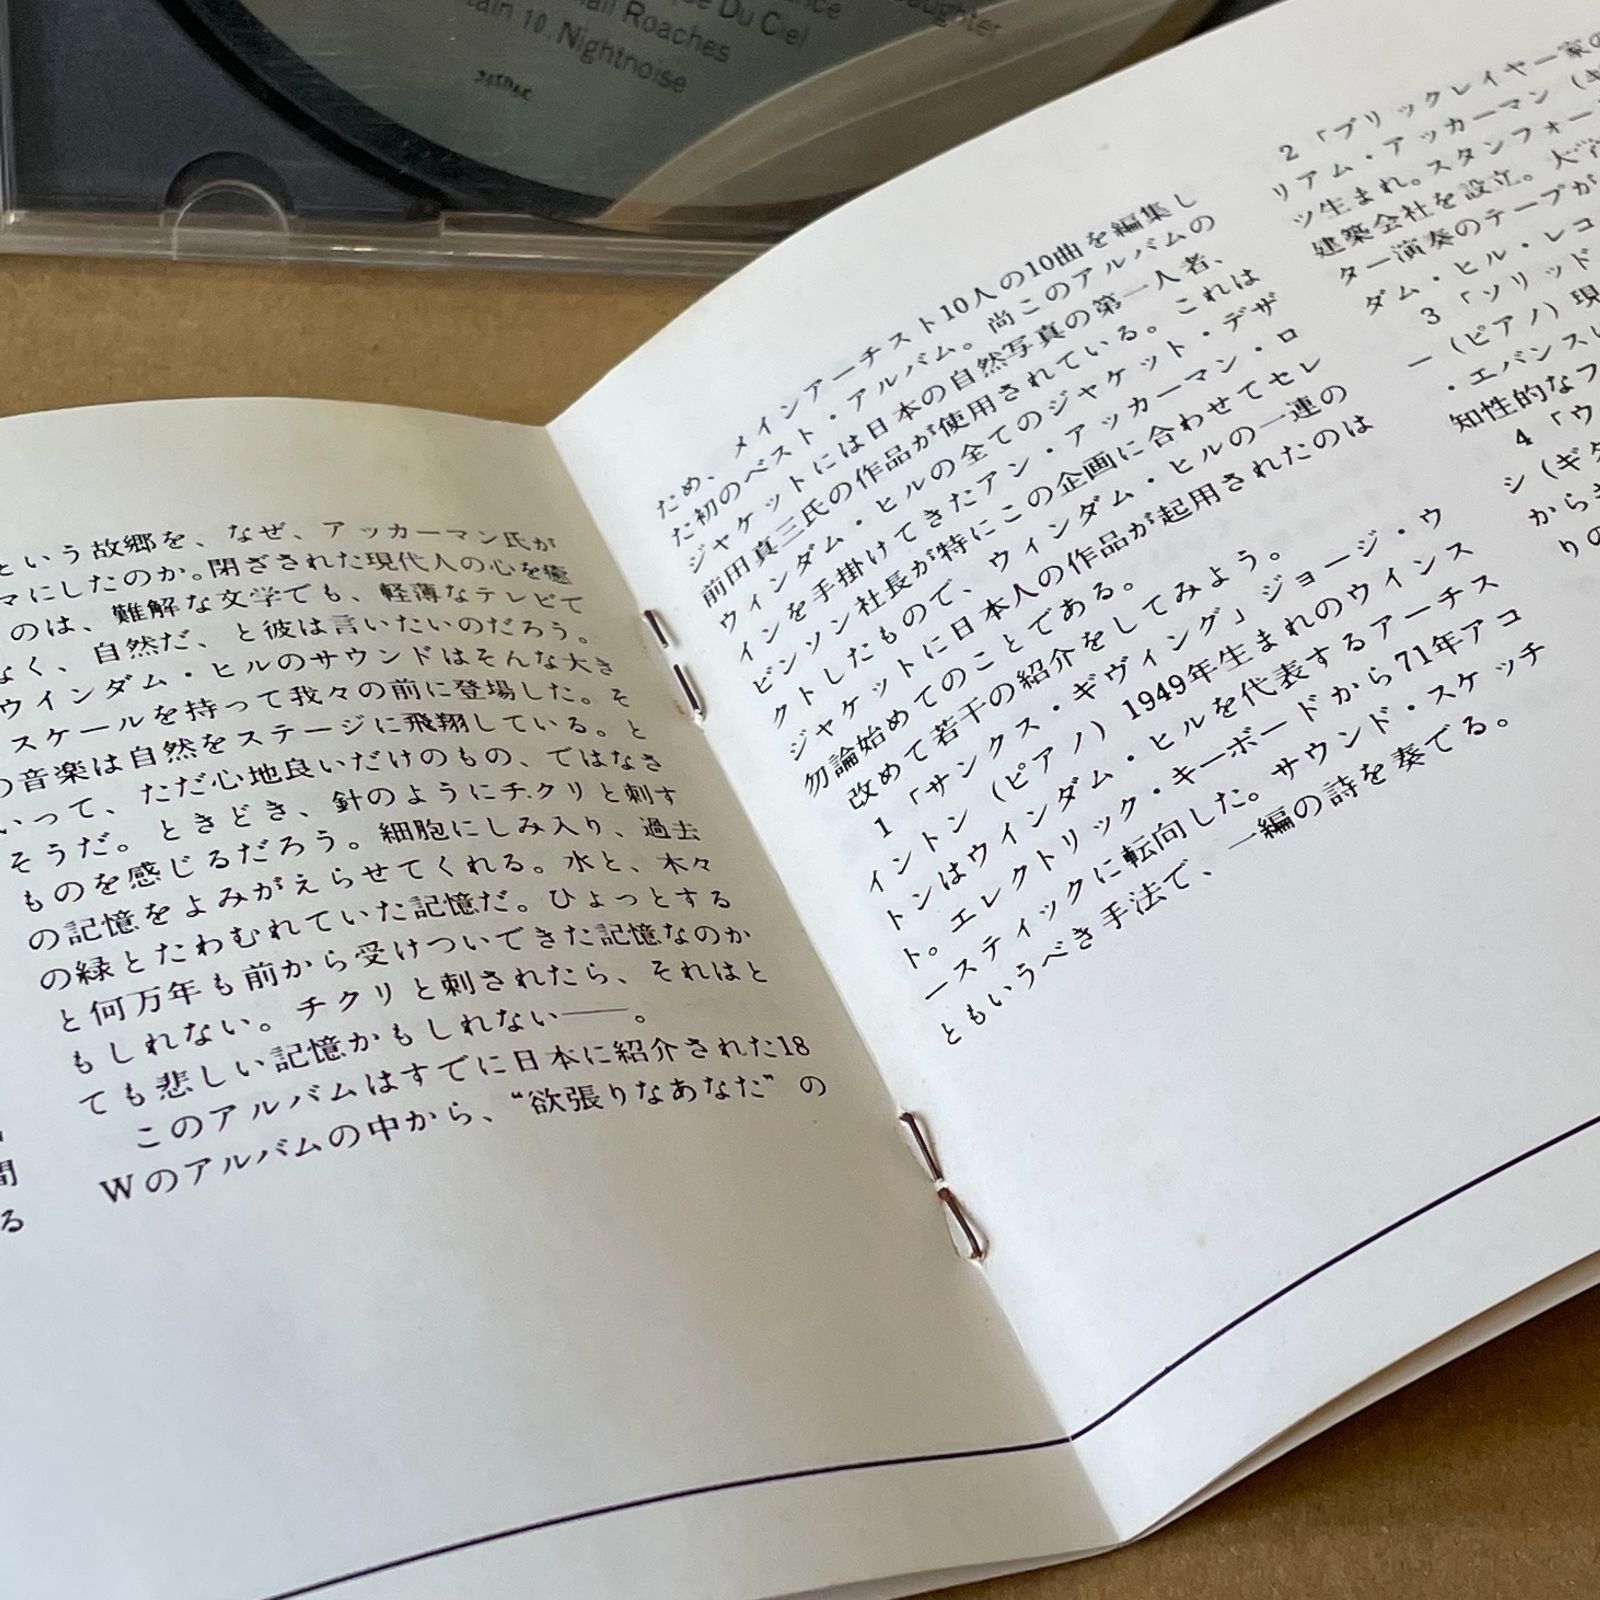 ance
aughter
e Du Ciel
all Roaches
tain 10. Nightnoise
という故郷を、なぜ、アッカーマン氏が
マにしたのか。閉ざされた現代人の心を癒
のは、難解な文学でも、軽薄なテレビて
なく、自然だ、と彼は言いたいのだろう。
ウインダム・ヒルのサウンドはそんな大き
スケールを持って我々の前に登場した。そ
の音楽は自然をステージに飛翔している。と
いって、ただ心地良いだけのもの、ではなさ
そうだ。ときどき、針のようにチクリと刺す
ものを感じるだろう。細胞にしみ入り、過去
の記憶をよみがえらせてくれる。水と、木々
の緑とたわむれていた記憶だ。ひょっとする
と何万年も前から受けついできた記憶なのか
もしれない。チクリと刺されたら、それはと
ても悲しい記憶かもしれない——。
このアルバムはすでに日本に紹介された18
Wのアルバムの中から、“欲張りなあなた”の
間
る
ため、メインアーチスト10人の10曲を編集し
た初のベスト・アルバム。尚このアルバムの
ジャケットには日本の自然写真の第一人者、
前田真三氏の作品が使用されている。これは
ウィンダム・ヒルの全てのジャケット・デザ
インを手掛けてきたアン・アッカーマン・ロ
ビンソン社長が特にこの企画に合わせてセレ
クトしたもので、ウィンダム・ヒルの一連の
ジャケットに日本人の作品が起用されたのは
勿論始めてのことである。
改めて若干の紹介をしてみよう。
1 「サンクス・ギヴィング」ジョージ・ウ
イントン（ピアノ）1949年生まれのウインス
トンはウインダム・ヒルを代表するアーチス
ト。エレクトリック・キーボードから71年アコ
ースティックに転向した。サウンド・スケッチ
ともいうべき手法で、一編の詩を奏でる。
2 「ブリックレイヤー家の
リアム・アッカーマン（ギ
ツ生まれ。スタンフォー
建築会社を設立。大
ター演奏のテープが
ダム・ヒル・レコ
3 「ソリッド
ー（ピアノ）現
・エバンスい
知性的なフ
4 「ウ
シ（ギタ
から
りの